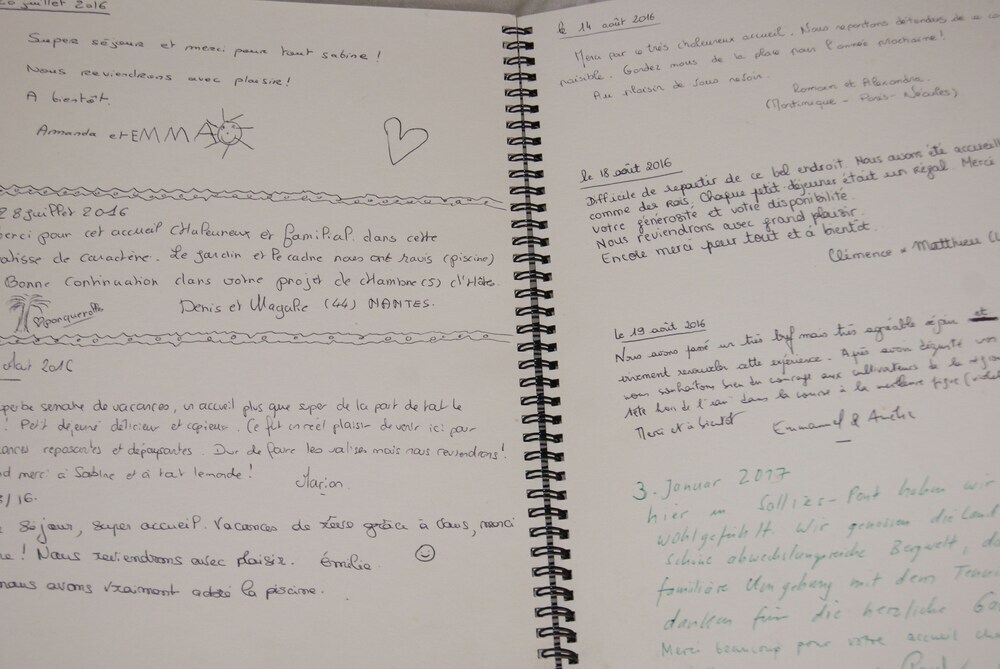 juillet 2016
Super séjour et merci pour tout Sabine !
Nous reviendrons avec plaisir!
A bientôt.
Amanda et EMMA
28 juillet 2016
erci pour cet accueil chaleureux et familial dans cette
atisse de caractère. Le jardin et le cadre nous ont ravis (piscine)
Bonne continuation dans votre projet de chambre(s) d'Hôte.
porquerolles
Denis et Magalie (44) NANTES.
2016
perbe semaine de vacances, un accueil plus que super de la part de tout le
! Petit dejeuné délicieux et copieux. Ce fut un réel plaisir de venir ici pour
ances reposantes et dépaysantes. Dur de faire les valises mais nous reviendrons!
d merci à Sabine et à tout le monde !
Marion.
/16.
séjour, super accueil. Vacances de rêve grâce à vous, merci
e ! Nous reviendrons avec plaisir. émilie.
nous avons vraiment adoré la piscine.
le 14 août 2016
Merci par ce très chaleureux accueil. Nous repartons détendues de ce
paisible. Gardez nous de la place pour l'année prochaine!
Au plaisir de vous revoir.
Romain et Alexandra.
(Martinique - Paris -
le 18 août 2016
Difficile de repartir de ce bel endroit. Nous avons été accueill
comme des rois. Chaque petit déjeuner était un régal. Merci
votre générosité et votre disponibilité.
Nous reviendrons avec grand plaisir.
Encore merci pour tout et à bientôt.
Clémence & Matthieu
le 19 août 2016
Nous avons passé un très bref mais très agréable séjour et
vivement renouveler cette expérience. Après avoir dégusté vos
vous souhaitons bien du courage aux cultivateurs de la région
tête dans la course à la meilleure figue
Merci et à bientôt
Emmanuel &
3. Januar 2017
hier in Solliès-Pont haben wir
wohlgefühlt. Wir genossen die Land
schöne abwechslungsreiche Bergwelt, d
familiäre Umgebung mit dem Tennis
danken für die herzliche Ga
Merci beaucoup pour votre accueil cha